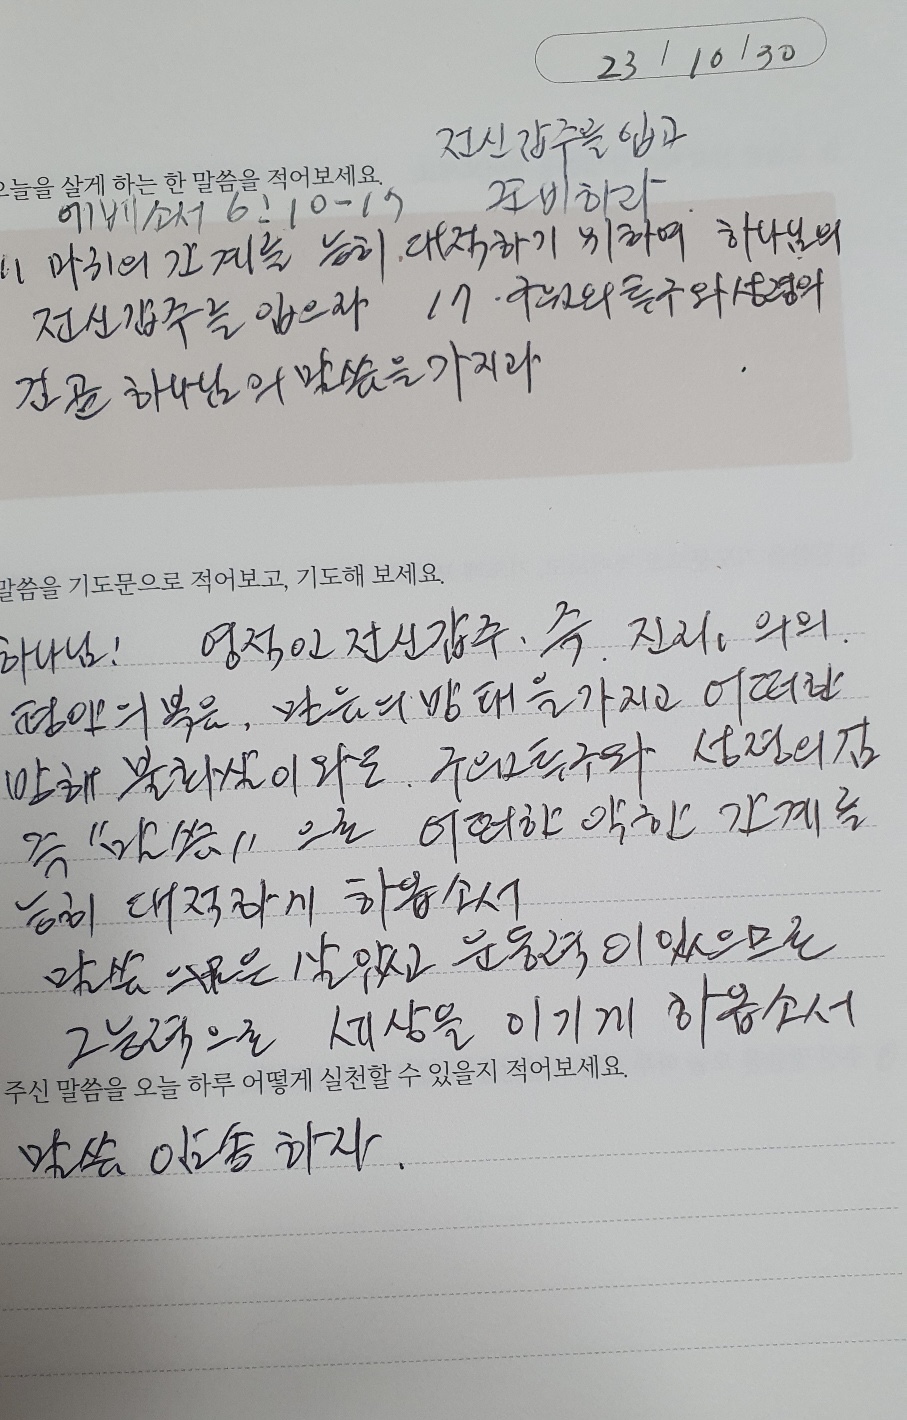 23 / 10 / 30
전신갑주를 입고
오늘을 살게 하는 한 말씀을 적어보세요.
준비하라
에베소서 6:10-17
11 마귀의 간계를 능히 대적하기 위하여 하나님의
전신갑주를 입으라 17. 구원의 투구와 성령의
검 곧 하나님의 말씀을 가지라
말씀을 기도문으로 적어보고, 기도해 보세요.
하나님! 영적인 전신갑주. 즉 진리, 의의.
평안의 복음, 믿음의 방패를 가지고 어떠한
방해 불화살이 와도. 구원의 투구와 성령의 검
즉 "말씀" 으로 어떠한 악한 간계를
능히 대적하게 하옵소서
말씀 은 살았고 운동력이 있으므로
그 능력으로 세상을 이기게 하옵소서
주신 말씀을 오늘 하루 어떻게 실천할 수 있을지 적어보세요.
말씀 암송 하자.